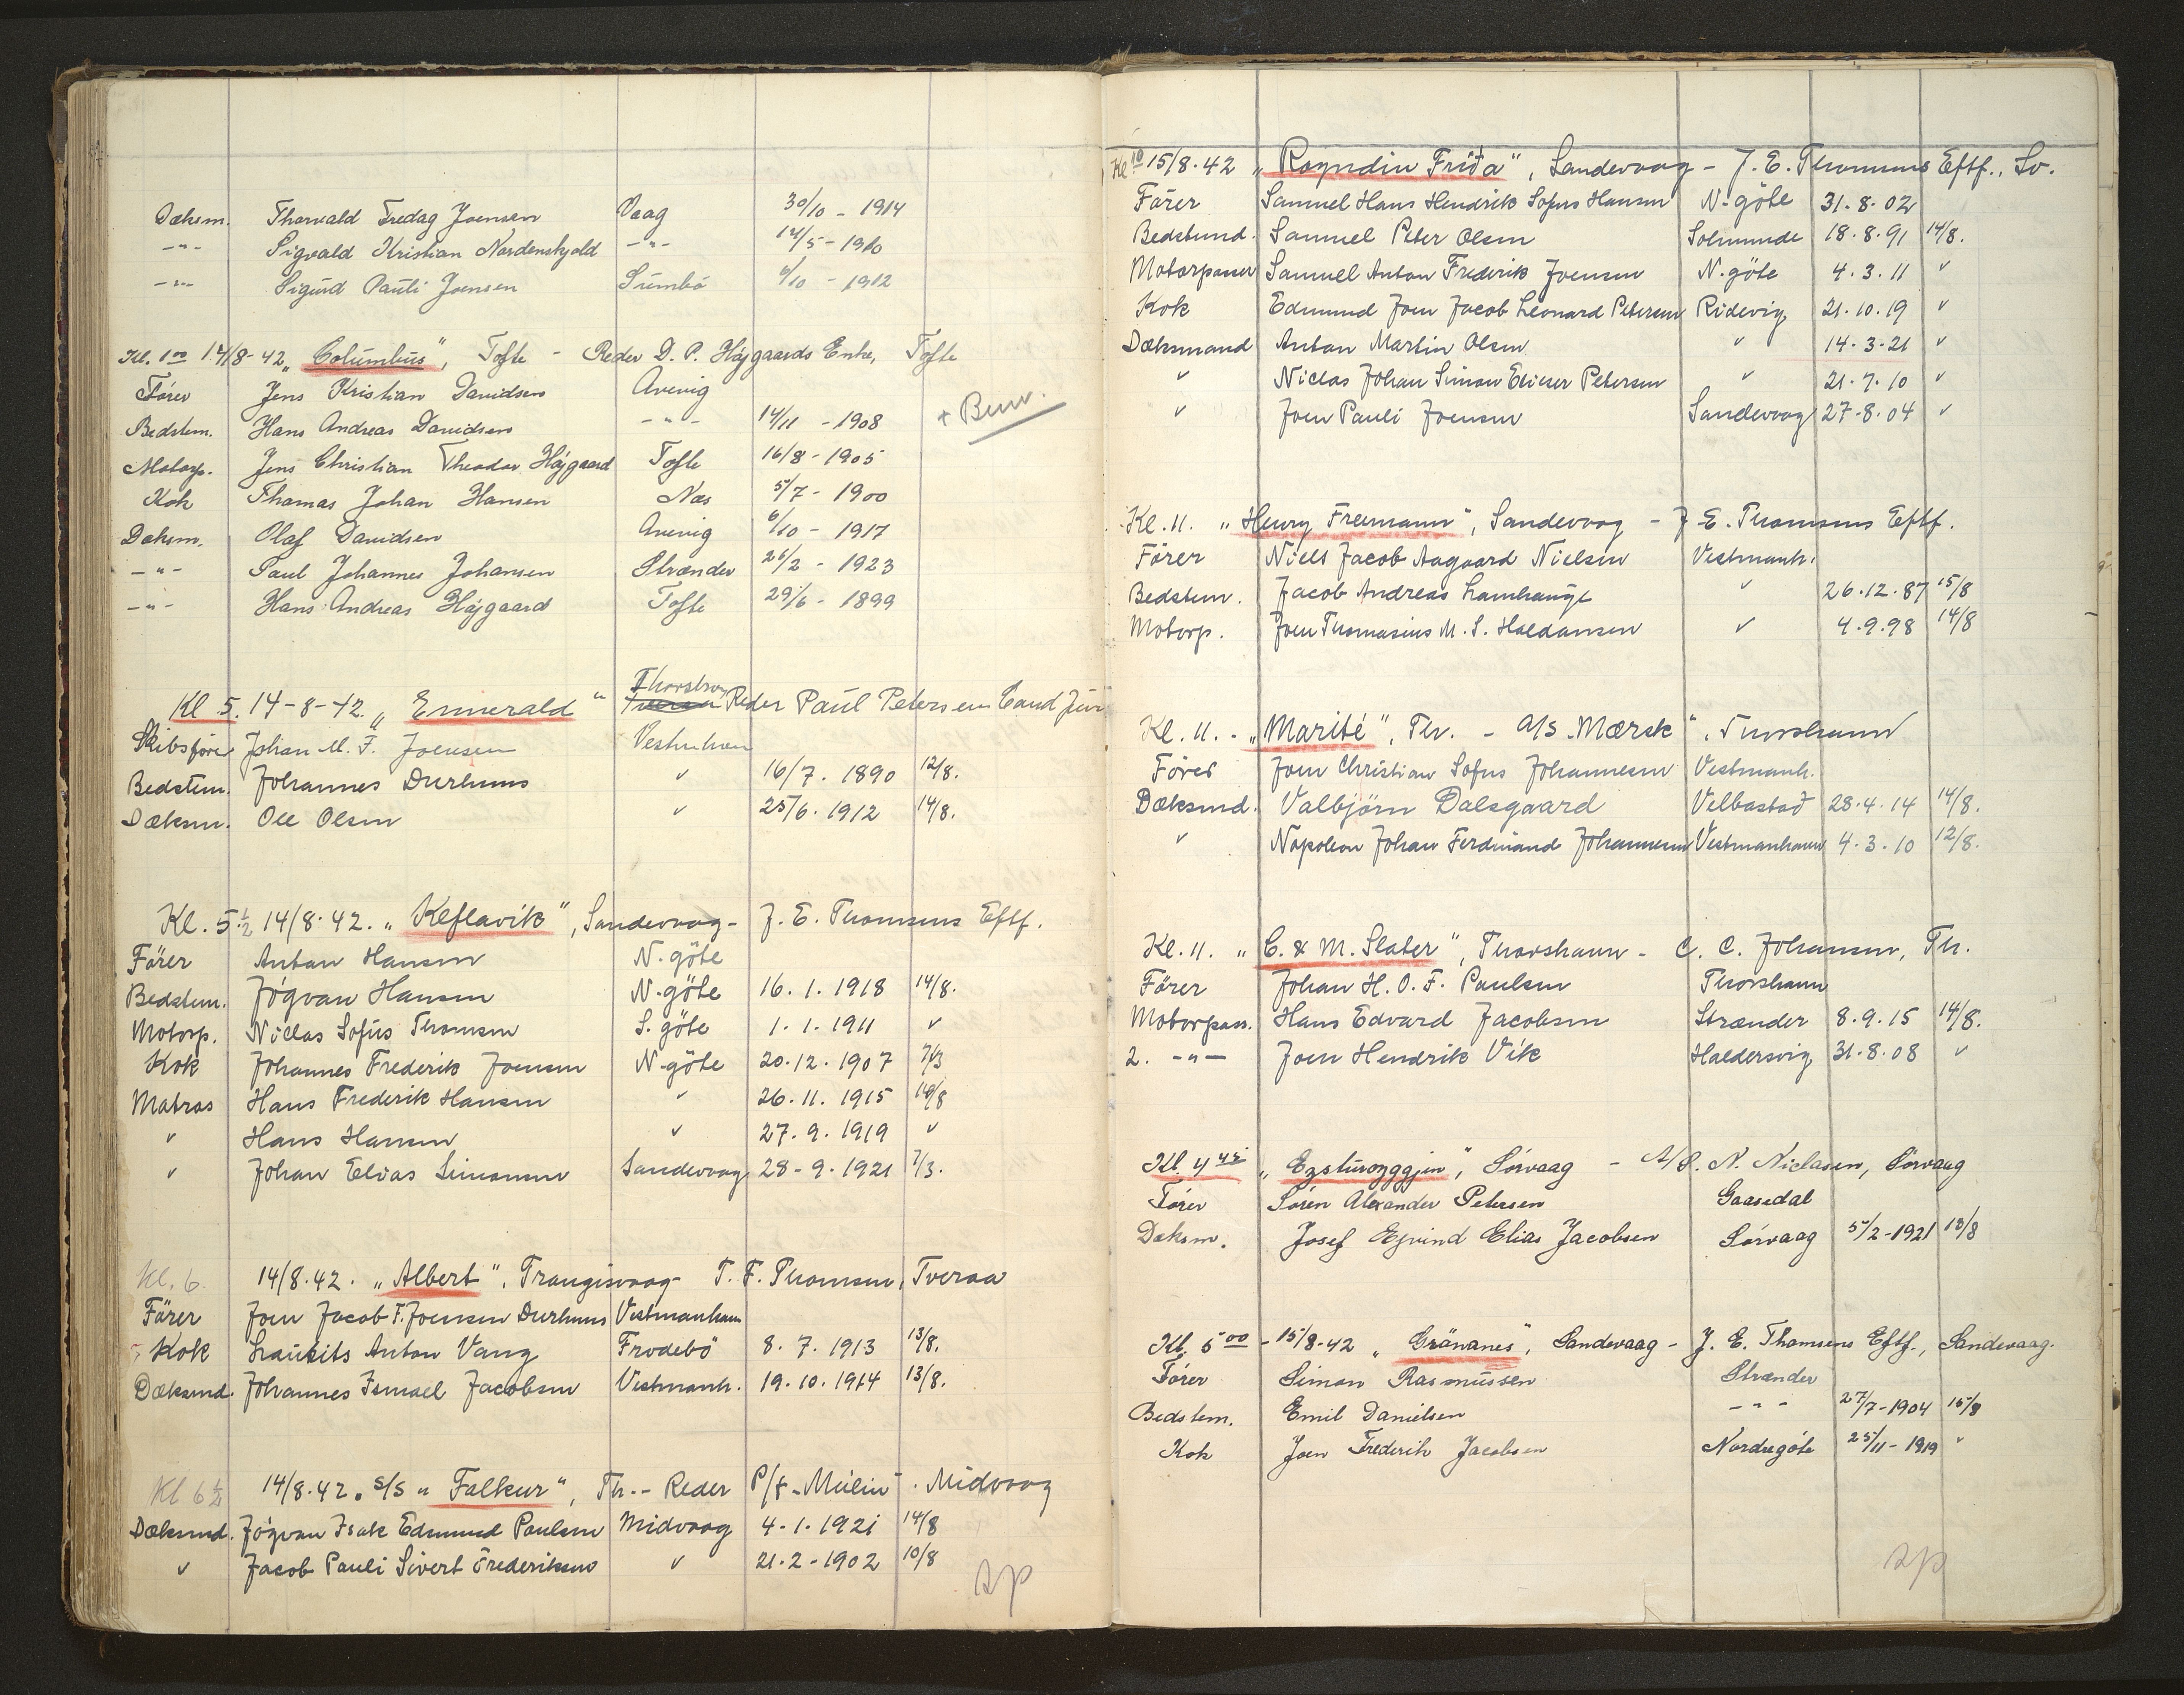 Dæksm. Thorvald Fredag Joensen Vaag 30/10 - 1914
-"- Sigvald Kristian Nordenskjold -"- 12/5 - 1910
-"- Sigurd Pauli Joensen Sumbö 6/10 - 1912
Kl. 1 00 14/8-42 „Columbus", Tofte - Reder D. P. Højgaards Enke, Tofte
Fører Jens Kristian Davidsen Avevig
Bedstem. Hans Andreas Davidsen -"- 14/11 - 1908 +
Motorp. Jens Christian Theodor Højgaard Tofte 16/8 - 1905
Kok Thomas Johan Hansen Næs 5/7 - 1900
Dæksm. Olaf Davidsen Avevig 6/10 - 1917
-"- Paul Johannes Johansen Strænder 26/2 - 1923
-"- Hans Andreas Højgaard Tofte 29/6 - 1899
Kl 5. 14-8-42. „Emmerald" Reder Paul Petersen Cand Jur
Skibsfører Johan M. F. Joensen
Bedstem. Johannes Durhuus ✓ 16/7. 1890 12/8.
Dæksm. Ole Olsen ✓ 25/6. 1912 14/8.
Kl. 5 1/2 14/8.42. „Keflavik", Sandevaag - J. E. Thomsens Eftf.
Förer Anton Hansen N. göte
Bedstem. Jógvan Hansen N-göte 16. 1. 1918 14/8.
Motorp. Niclas Sofus Thomsen S. göte 1. 1. 1911 ✓
Kok Johannes Frederik Joensen N-göte 20. 12. 1907 7/3
Matros Hans Frederik Hansen ✓ 26. 11. 1915 14/8
✓ Hans Hansen ✓ 27. 9. 1919 ✓
✓ Johan Elias Simonsen Sandevaag 28-9. 1921 7/3.
Kl. 6. 14/8.42. „Albert", Trangisvaag - T. F. Thomsen, Tveraa
Förer Joen Jacob F. Joensen Durhuus Vestmanhavn
Kok Lauritz Anton Vang Frodebö 8. 7. 1913 13/8.
Dæksmd. Johannes Ismael Jacobsen Vestmanh. 19. 10. 1914 13/8.
Kl 6 1/2 14/8.42. S/S „Falkur", Th. - Reder P/f - Mulin - Midvaag
Dæksmd. Jógvan Isak Edmund Poulsen Midvaag 4-1. 1921 14/8
✓ Jacob Pauli Sivert Frederiksen ✓ 21. 2 - 1902 10/8
Kl 10 15/8.42 „Royndin Friða", Sandevaag - J. E. Thomsens Eftf., Sv.
Förer Samuel Hans Hendrik Sofus Hansen N-göte 31. 8. 02
Bedstmd. Samuel Peter Olsen Solmunde 18. 8. 91 14/8.
Motorpasser Samuel Anton Frederik Joensen N. göte 4. 3. 11 ✓
Kok Edmund Joen Jacob Leonard Petersen Ridevig 21. 10. 19 ✓
Dæksmand Anton Martin Olsen ✓ 14. 3. 21 ✓
✓ Niclas Johan Simon Elieser Petersen ✓ 21. 7. 10 ✓
✓ Joen Pauli Joensen Sandevaag 27. 8. 04 ✓
Kl. 11. „Henry Freemann", Sandevaag - J. E. Thomsens Eftf.
Förer Niels Jacob Aagaard Nielsen Vestmanh.
Bedstem. Jacob Andreas Lamhauge ✓ 26. 12. 87 15/8
Motorp. Joen Thomasius M. S. Haldansen ✓ 4. 9. 98 14/8
Kl. 11. - „Marité", Thr. - A/S „Mærsk", Thorshavn
Förer Joen Christian Sofus Johannesen Vestmanh.
Dæksmd. Valbjörn Dalsgaard Velbastað 28. 4. 14 14/8.
✓ Napoleon Johan Ferdinand Johannesen Vestmanhavn 4. 3. 10 12/8.
Kl. 11. „C. & M. Slater", Thorshavn - C. C. Johansen, Th.
Förer Johan H. O. F. Poulsen Thorshavn
Motorpass. Hans Edvard Jacobsen Strænder 8. 9. 15 14/8.
2. -"- Joen Hendrik Vik Haldersvig 31. 8. 08 ✓
Kl. 4 45 „Eysturoyggjin", Sörvaag - A/S. N. Niclasen, Sörvaag
Fører Sören Alexander Petersen Gaasedal
Dæksm. Josef Ejvind Elias Jacobsen Sörvaag 5/2 - 1921 13/8
Kl. 5 00 - 15/8-42 „Grånanes", Sandevaag - J. E. Thomsens Eftf., Sandevaag.
Fører Simon Rasmussen Strænder
Bedstem. Emil Danielsen -"- 27/7 - 1904 15/8
Kok Joen Frederik Jacobsen Nordregöte 25/11 - 1919 "